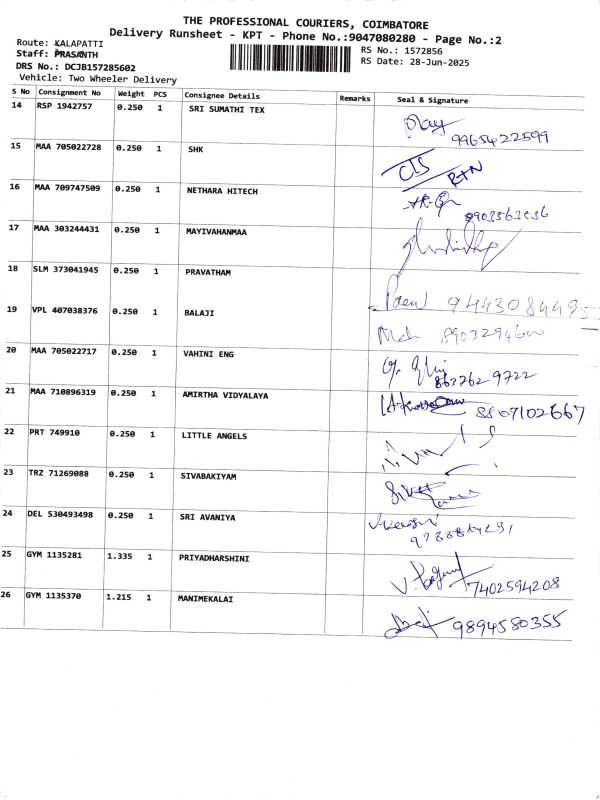 THE PROFESSIONAL COURIERS, COIMBATORE
Delivery Runsheet - KPT - Phone No.:9047080280 - Page No.:2
Route: KALAPATTI
Staff: PRASANTH
DRS No.: DCJB157285602
Vehicle: Two Wheeler Delivery
RS No.: 1572856
RS Date: 28-Jun-2025
S No Consignment No Weight PCS Consignee Details Remarks Seal & Signature
14 RSP 1942757 0.250 1 SRI SUMATHI TEX 9965422599
15 MAA 705022728 0.250 1 SHK
16 MAA 709747509 0.250 1 NETHARA HITECH
17 MAA 303244431 0.250 1 MAYIVAHANMAA
18 SLM 373041945 0.250 1 PRAVATHAM 9443084495
19 VPL 407038376 0.250 1 BALAJI
20 MAA 705022717 0.250 1 VAHINI ENG 8637629722
21 MAA 710896319 0.250 1 AMIRTHA VIDYALAYA 8807102667
22 PRT 749910 0.250 1 LITTLE ANGELS
23 TRZ 71269088 0.250 1 SIVABAKIYAM
24 DEL 530493498 0.250 1 SRI AVANIYA
25 GYM 1135281 1.335 1 PRIYADHARSHINI 7402594208
26 GYM 1135370 1.215 1 MANIMEKALAI 9894580355